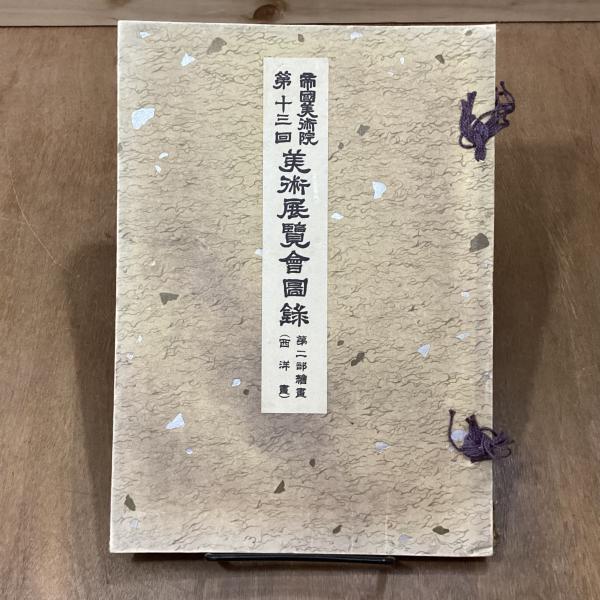 帝國美術院
第十三回
美術展覽會圖錄
第二部繪畫
(西洋畫)